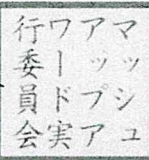 マッシュ
アップア
ワード実
行委員会